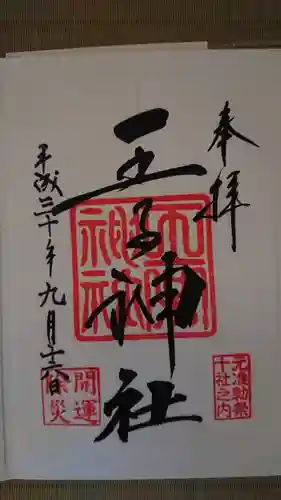 奉拝
王子神社
平成三十年九月十六日
元准勅祭
十社之内
開運
除災